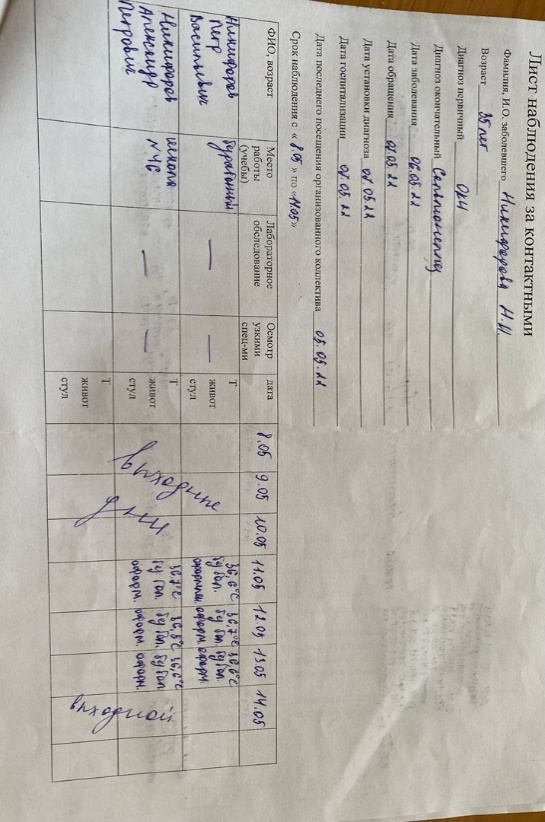 Лист наблюдения за контактными
Фамилия, И.О. заболевшего Никифорова Н.И.
Возраст 35 лет
Диагноз первичный ОКИ
Диагноз окончательный Сальмонеллез
Дата заболевания 06.05.22
Дата обращения 07.05.22
Дата установки диагноза 07.05.22
Дата госпитализации 07.05.22
Дата последнего посещения организованного коллектива 05.05.22
Срок наблюдения с « 8.05 » по «14.05»
ФИО, возраст
Место работы (учебы)
Лабораторное обследование
Осмотр узкими спец-ми
дата
8.05 9.05 10.05 11.05 12.05 13.05 14.05
Никифоров Петр Васильевич
—
—
Т
живот
стул
36,6°С 36,7°С 36,6°С
б/бол. б/бол б/бол
оформл. оформ. оформ.
Никифоров Александр Петрович
школа №46
—
—
Т
живот
стул
36,7°С 36,5°С 36,6°С
б/бол. б/бол. б/бол
оформ. оформ. оформ.
Т
живот
стул
выходные
дни
выходной